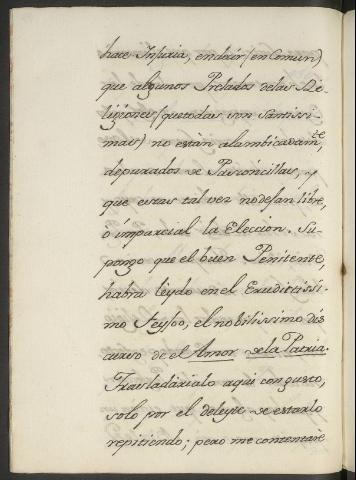 hace Injuria, en decir (en Comun)
que algunos Prelados de las Re-
ligiones (que todas son Santissi-
mas) no estàn alambicadam.te,
depurados de Passioncillas, y
que estas tal vez no dejan libre,
ò imparcial la Eleccion. Su-
pongo que el buen Penitente,
habra leydo en el Eruditissi-
mo Feyjoo, el nobilissimo dis
curso de el Amor de la Patria.
Trasladàralo aqui con gusto,
solo por el deleyte de estarlo
repitiendo; pero me contentarè